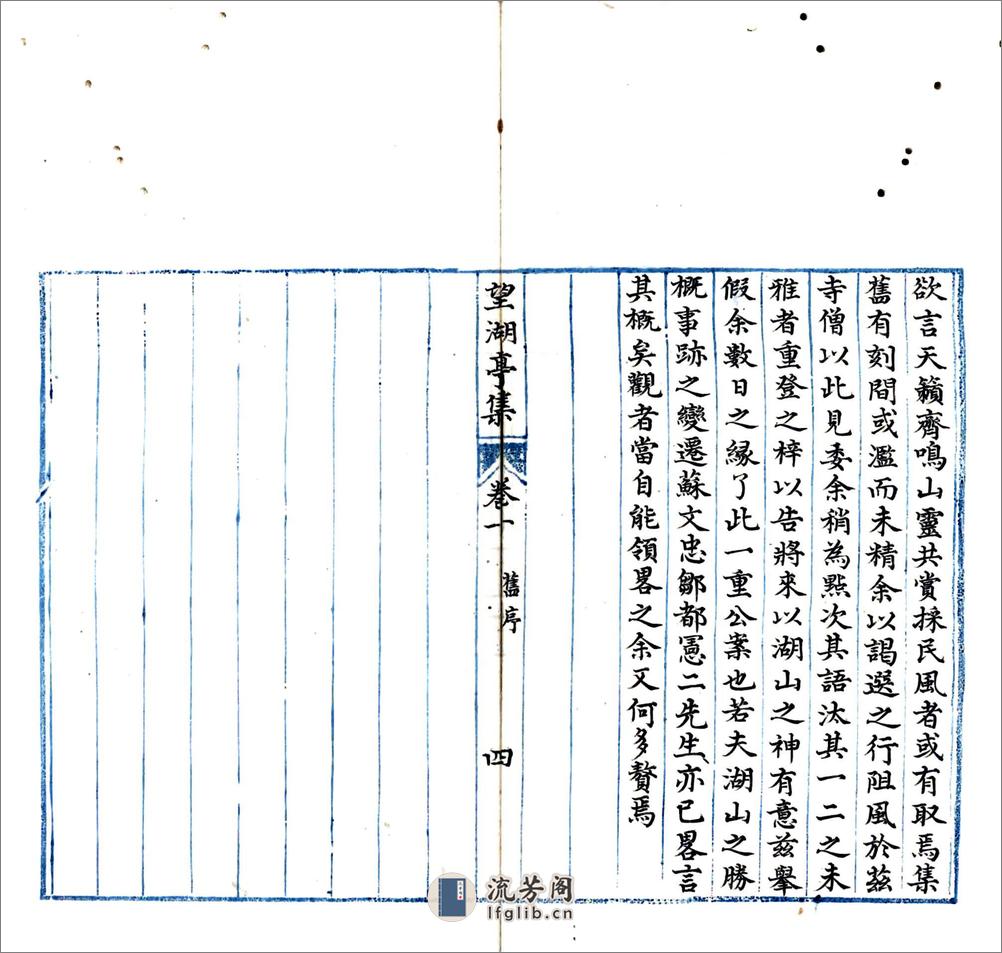 欲言天籟齊鳴山靈共賞採民風者或有取焉集
舊有刻間或濫而未精余以謁選之行阻風於茲
寺僧以此見委余稍為點次其語汰其一二之未
雅者重登之梓以告將來以湖山之神有意茲舉
假余數日之緣了此一重公案也若夫湖山之勝
概事跡之變遷蘇文忠鄒都憲二先生亦已畧言
其概矣觀者當自能領畧之余又何多贅焉
望湖亭集
卷一
舊序
四
流芳阁
lfglib.cn